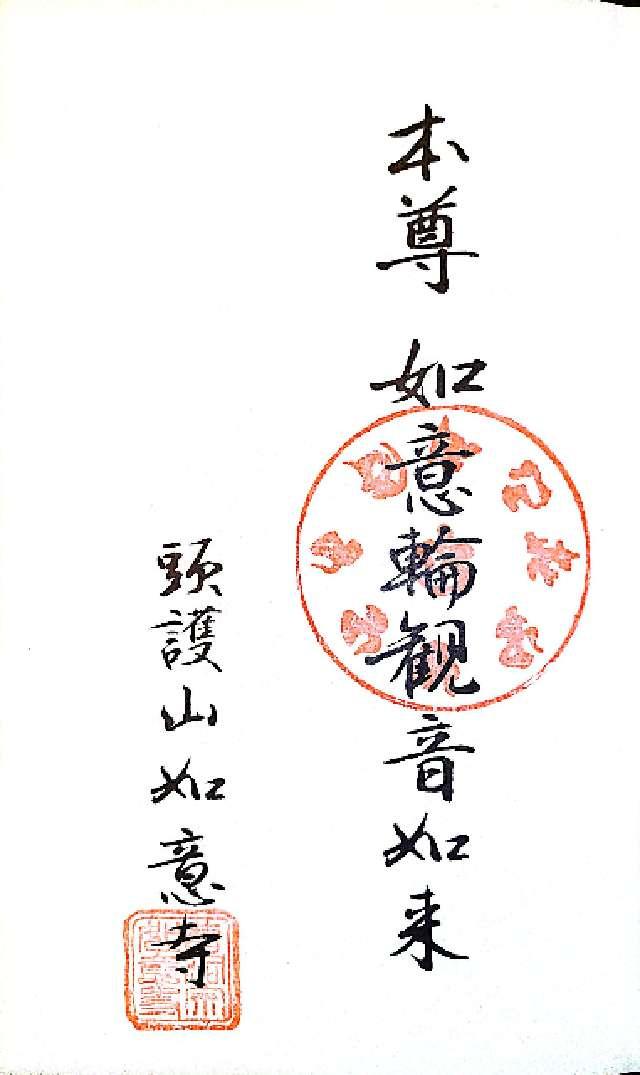 本尊 如意輪観音如来
頭護山如意寺